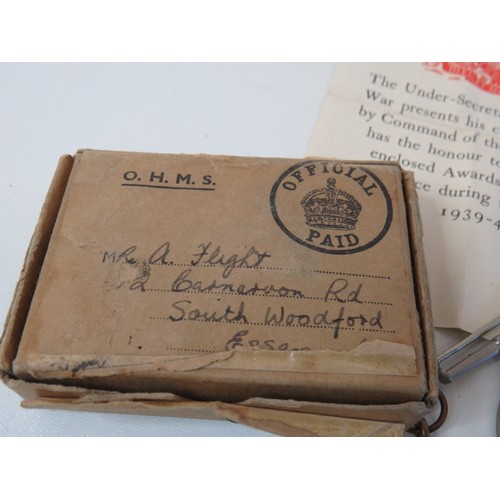 O. H. M. S.
OFFICIAL
PAID
A. Flight
Carnarvon Rd
South Woodford
The Under-Secret
War presents his c
by Command of the
has the honour
enclosed Awards
during
1939-4